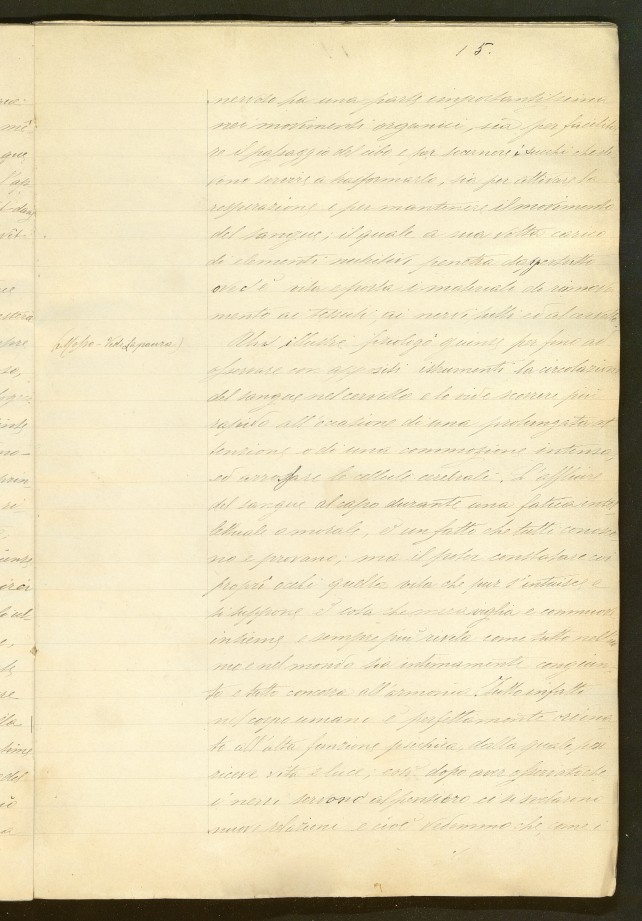 15.
nervoso ha una parte importantissima
nei movimenti organici, sia per facilita
re il passaggio del cibo e far scernere i succhi che de
vono servire a trasformarlo, sia per attivare la
respirazione e per mantenere il movimento
del sangue; il quale a sua volta carico
di elementi nutritivi penetra dappertutto
ov'è vita e porta materiale di rinnova
mento ai tessuti, ai nervi tutti ed al cervello.
(Mosso - Vedi La paura)
Un illustre fisiologo giunse per fino ad
osservare con appositi istrumenti la circolazione
del sangue nel cervello e lo vide scorrere più
rapido all'occasione di una prolungata at
tenzione o di una commozione intensa,
ed arrossare le cellule cerebrali. L'affluire
del sangue al capo durante una fatica intel
lettuale o morale, è un fatto che tutti conosco
no e provano; ma il poter constatare coi
proprî occhi quella vita che pur s'intuisce e
si suppone è cosa che meraviglia e commuove
insieme e sempre più rivela come tutto nell'uo
mo e nel mondo sia intimamente congiun
to e tutto concorra all'armonia. Tutto infatti
nel corpo umano è perfettamente ordina
to all'alta funzione psichica, dalla quale poi
riceve vita e luce; così dopo aver osservato che
i nervi servono al pensiero ci si svelarono
nuove relazioni e cioè vedemmo che, come i